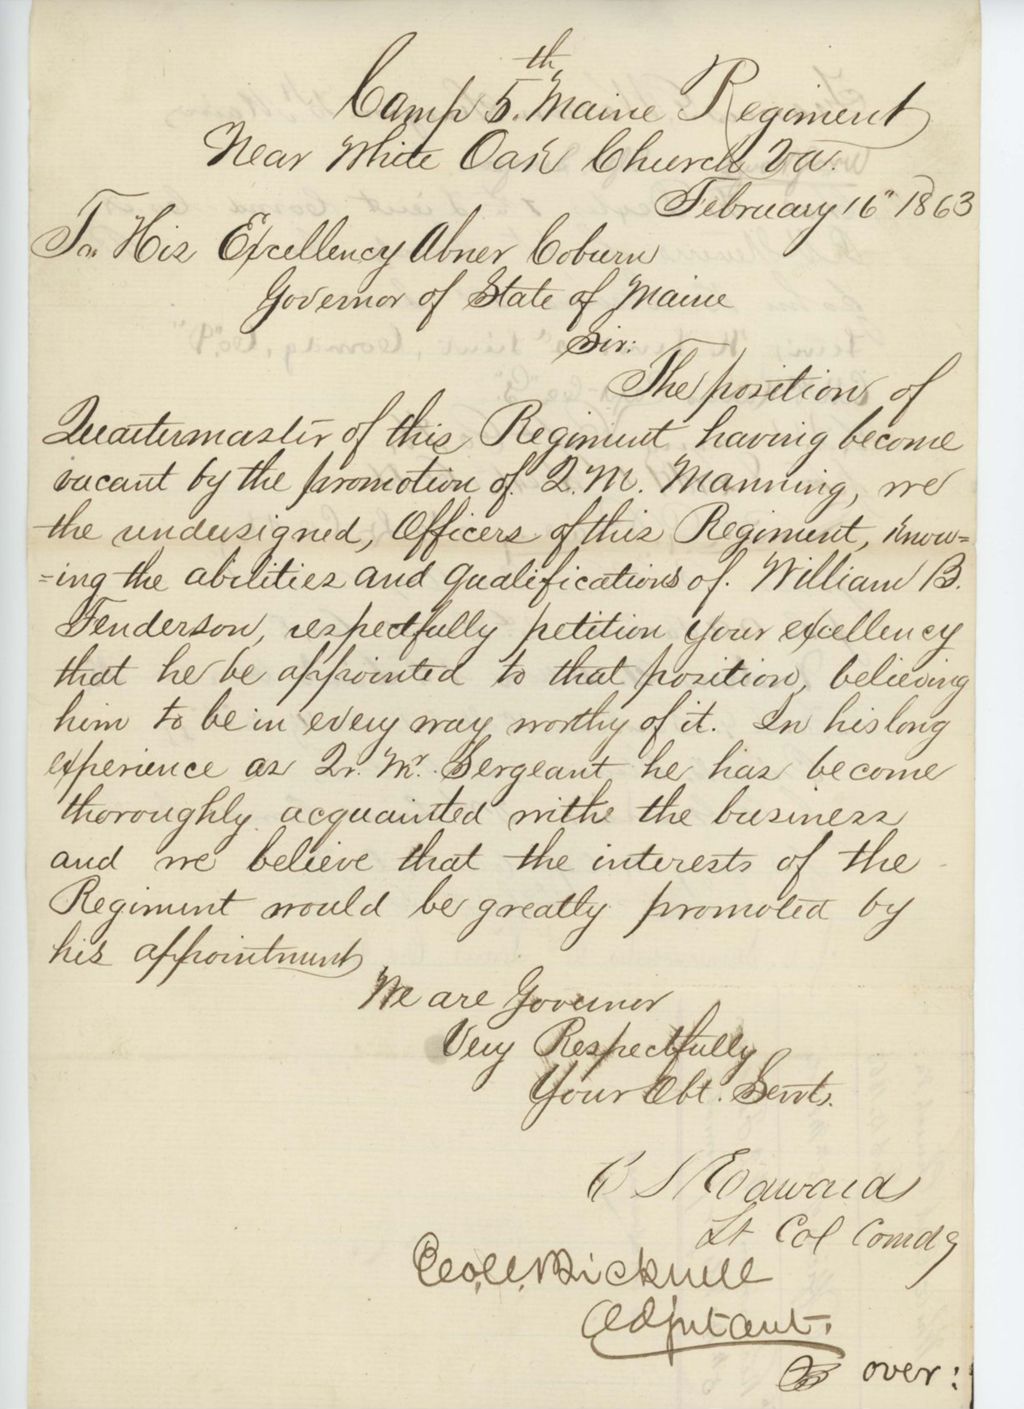 Camp 5.th Maine Regiment
Near White Oak Church Va.
February 16" 1863
To His Excellency Abner Coburn
Governor of State of Maine
Sir:
The position of
Quartermaster of this Regiment having become
vacant by the promotion of Q. M. Manning, we
the undersigned, Officers of this Regiment, know=
=ing the abilities and qualifications of William B.
Fenderson, respectfully petition your excellency
that he be appointed to that position, believing
him to be in every way worthy of it. In his long
experience as Qr. Mr. Sergeant he has become
thoroughly acquaintted withe the business
and we believe that the interests of the
Regiment would be greatly promoted by
his appointment
We are Governor
Very Respectfully
Your Obt. Servts.
C S Edwards
Lt Col Comdg
Geo. W. Bicknell
Adjutant.
over: